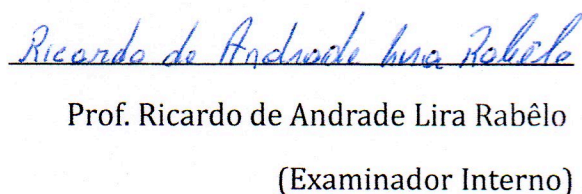 Ricardo de Andrade Lira Rabêlo
Prof. Ricardo de Andrade Lira Rabêlo
(Examinador Interno)